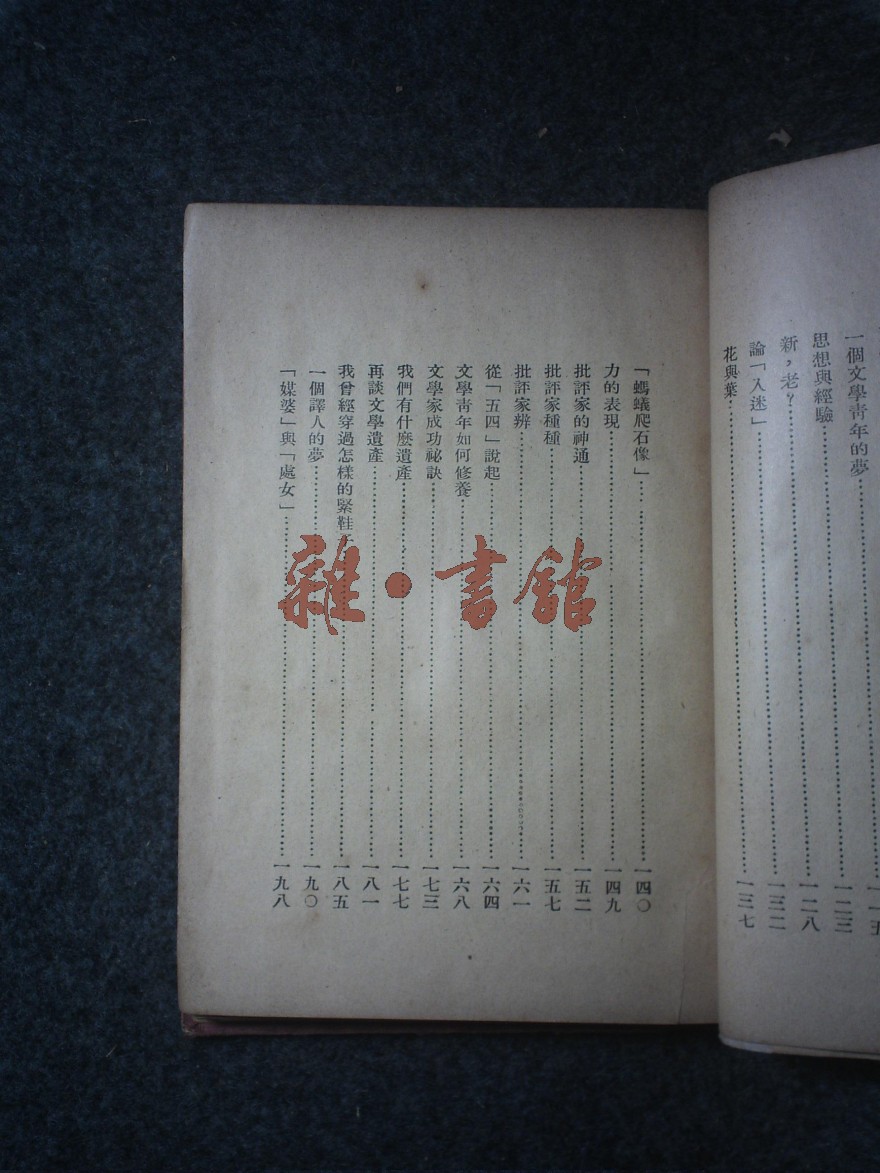 一個文學青年的夢
一二三
思想與經驗
一二八
新，老？
一三二
論「入迷」
花與葉
一三七
「螞蟻爬石像」
一四〇
力的表現
一四九
批評家的神通
一五二
批評家種種
一五七
批評家辨
一六一
從「五四」說起
一六四
文學青年如何修養
一六八
文學家成功祕訣
一七三
我們有什麼遺產
一七七
再談文學遺產
一八一
我曾經穿過怎樣的緊鞋
一八五
一個譯人的夢
一九〇
「媒婆」與「處女」
一九八
雜·書館